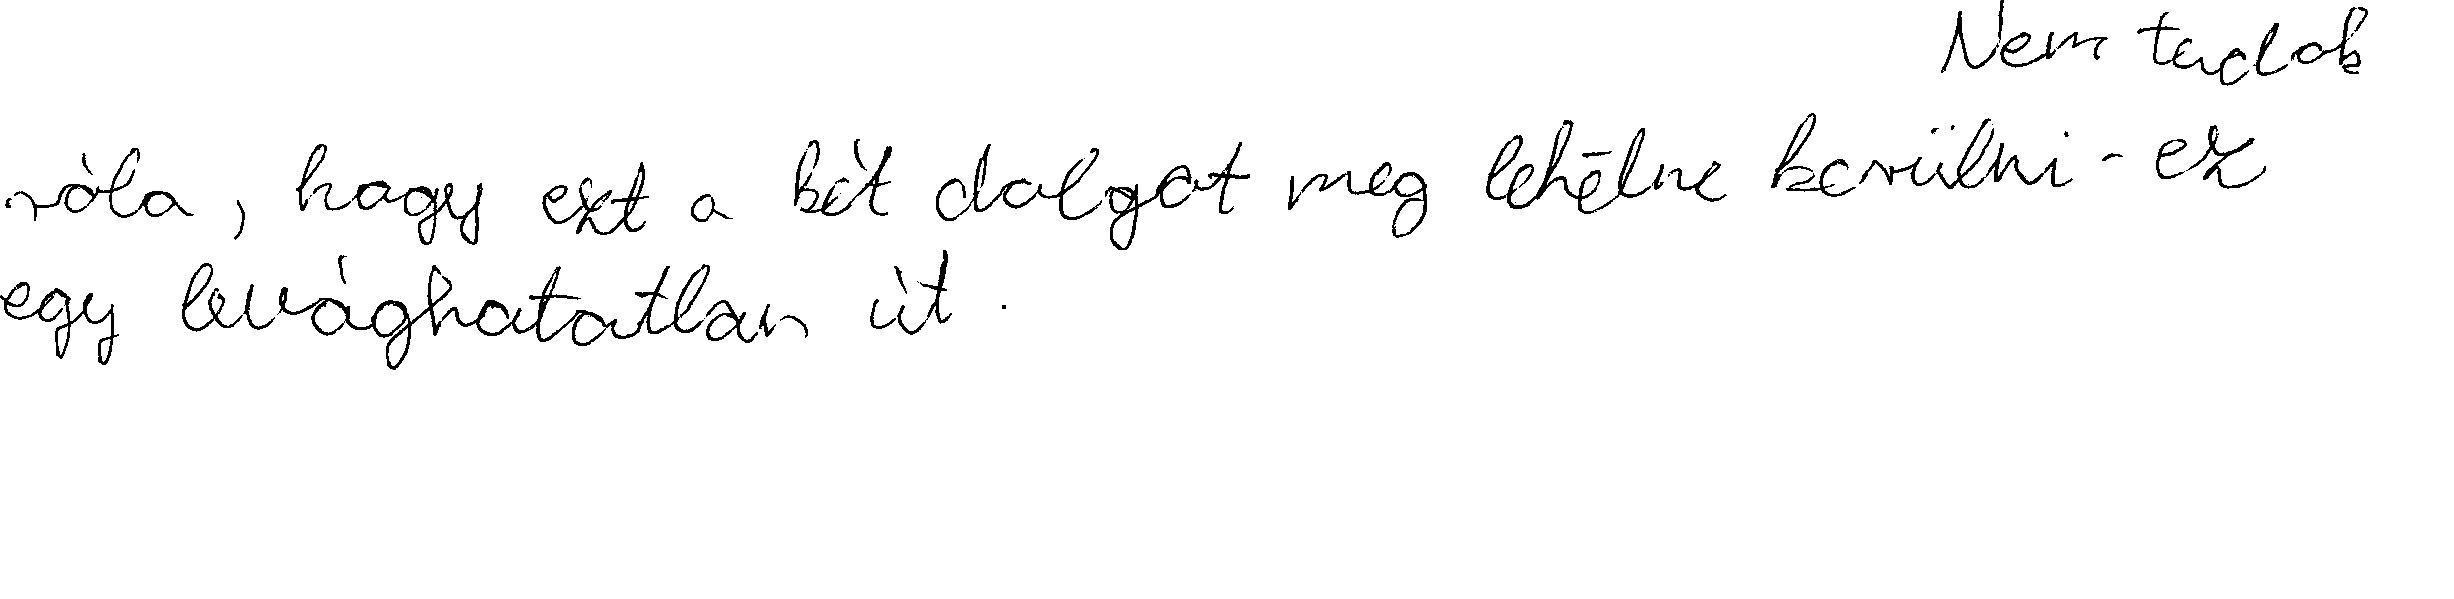 Nem tudok
róla, hogy ezt a két dolgot meg lehetne kerülni - ez
egy levághatatlan út.